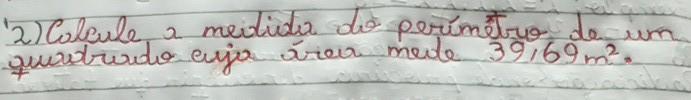 2) Calcule a medida do perímetro de um
quadrado cuja área mede 39,69 m².